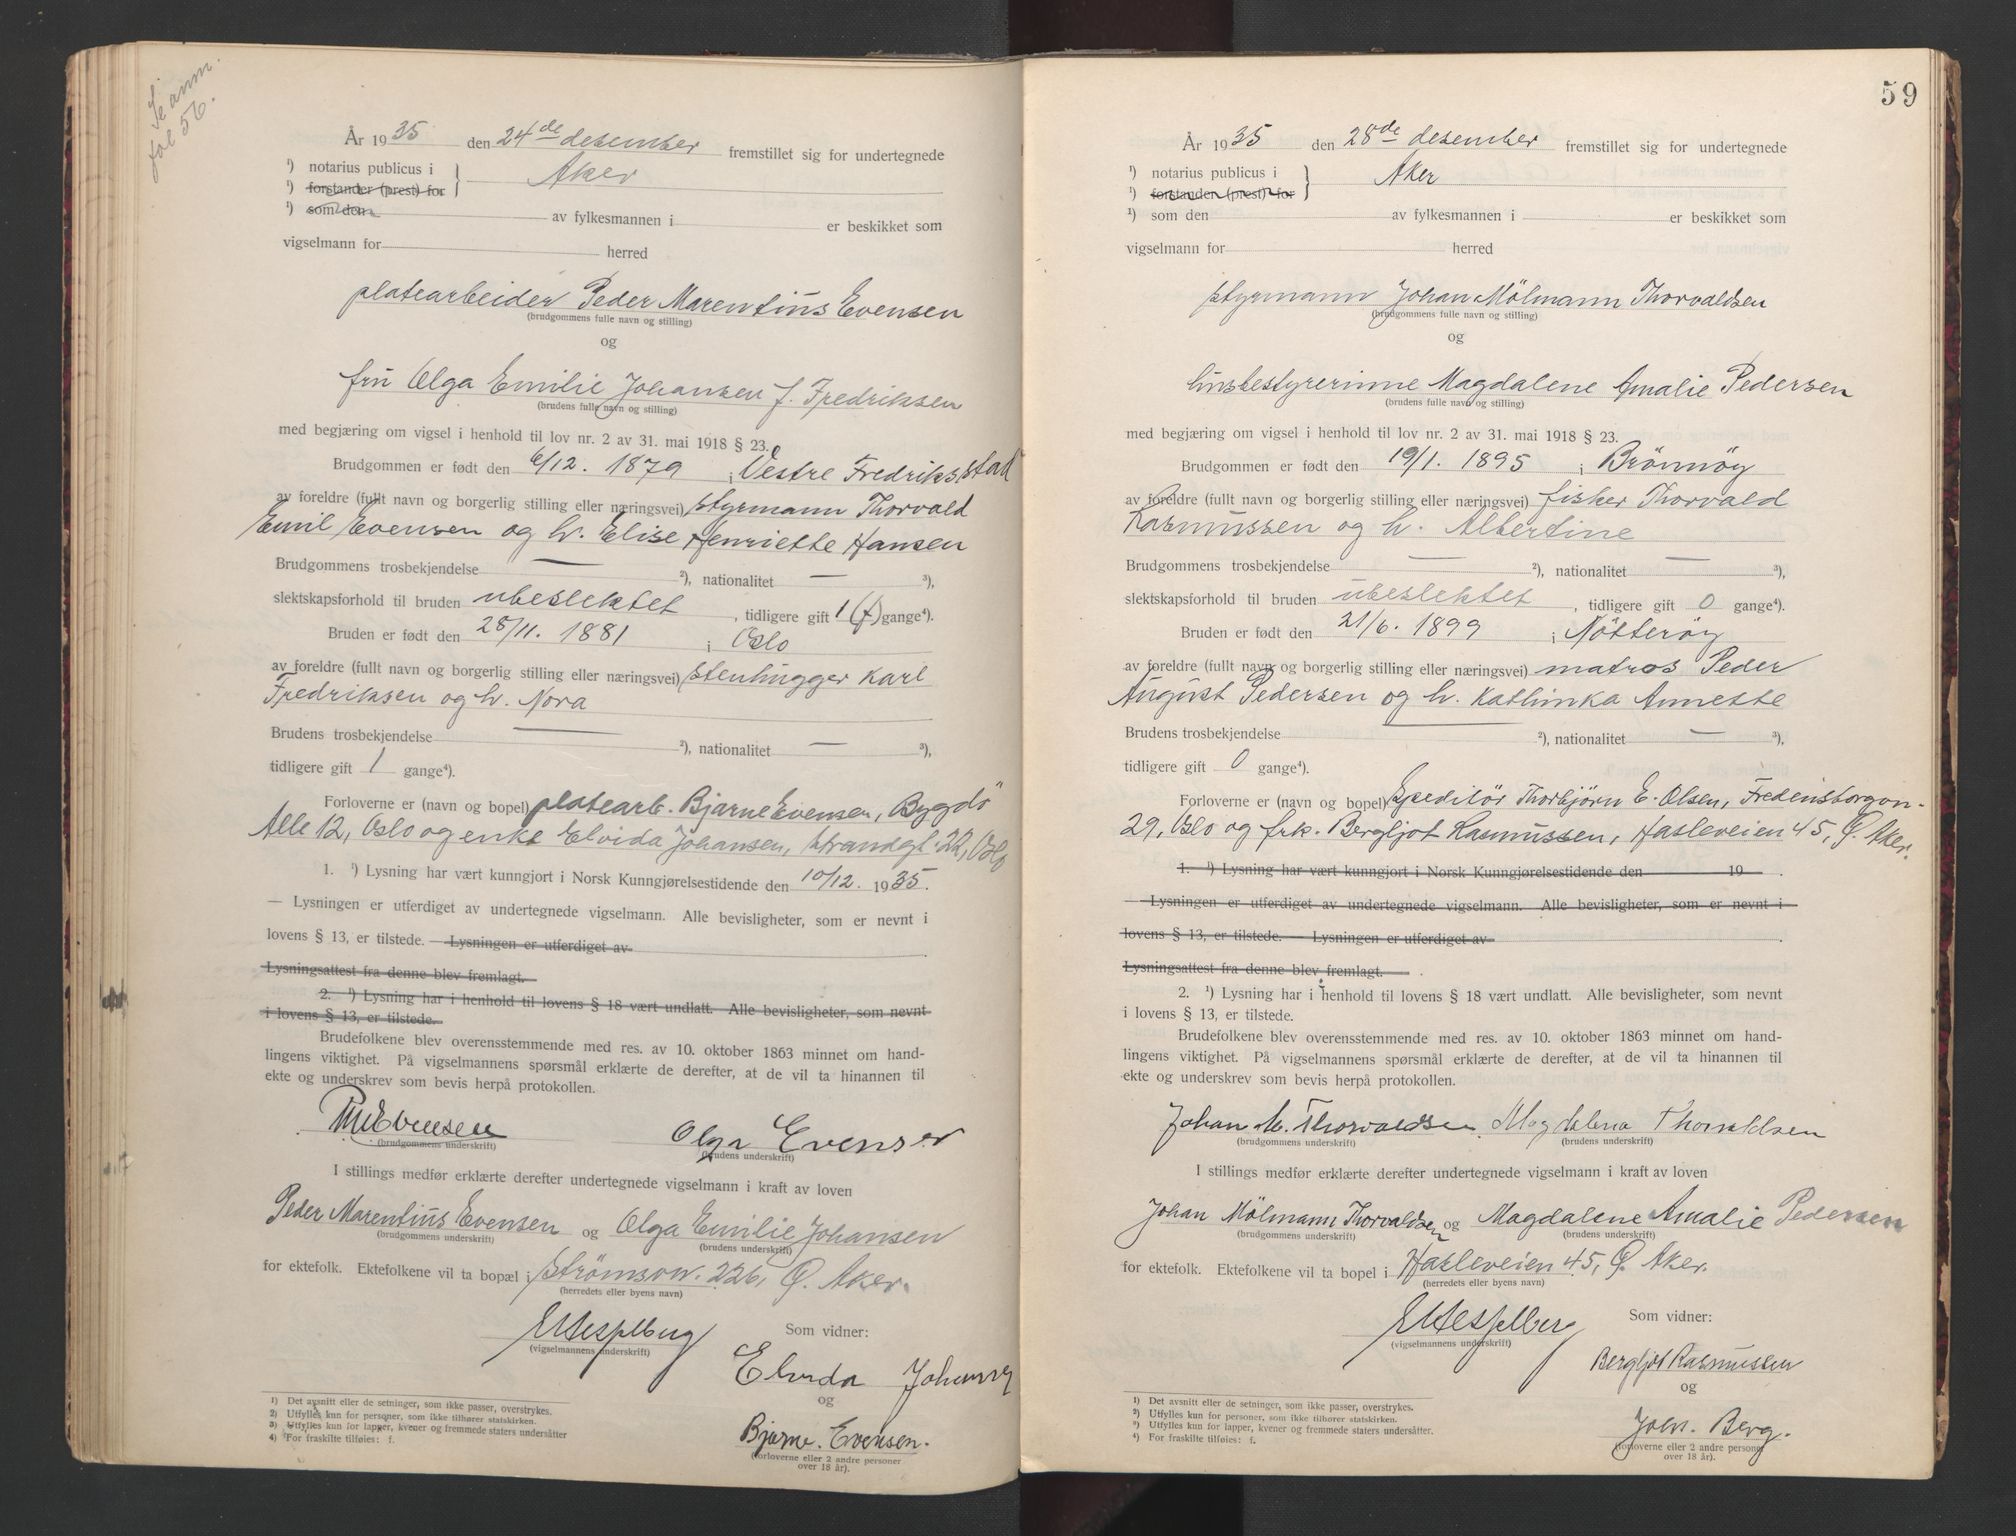 Se anm.
fol 56.
År 1935 den 24de desember fremstillet sig for undertegnede
¹) notarius publicus i } Aker
¹) forstander (prest) for
¹) som den av fylkesmannen i er beskikket som
vigselmann for herred
platearbeider Peder Marentius Evensen
(brudgommens fulle navn og stilling)
og
fru Olga Emilie Johansen f. Fredriksen
(brudens fulle navn og stilling)
med begjæring om vigsel i henhold til lov nr. 2 av 31. mai 1918 § 23.
Brudgommen er født den 6/12. 1879 i Vestre Fredriksstad
av foreldre (fullt navn og borgerlig stilling eller næringsvei) styrmann Thorvald
Emil Evensen og h. Elise Henriette Hansen
Brudgommens trosbekjendelse — ²), nationalitet — ³),
slektskapsforhold til bruden ubeslektet, tidligere gift 1 (f) gange⁴).
Bruden er født den 28/11. 1881 i Oslo
av foreldre (fullt navn og borgerlig stilling eller næringsvei) stenhugger Karl
Fredriksen og h. Nora
Brudens trosbekjendelse — ²), nationalitet — ³),
tidligere gift 1 gange⁴).
Forloverne er (navn og bopel) platearb. Bjarne Evensen, Bygdö
Alle 12, Oslo og enke Elvida Johansen, Strandgt. 22, Oslo
1. ¹) Lysning har vært kunngjort i Norsk Kunngjørelsestidende den 10/12. 1935.
— Lysningen er utferdiget av undertegnede vigselmann. Alle bevisligheter, som er nevnt i
lovens § 13, er tilstede. — Lysningen er utferdiget av
Lysningsattest fra denne blev fremlagt.
2. ¹) Lysning har i henhold til lovens § 18 vært undlatt. Alle bevisligheter, som nevnt
i lovens § 13, er tilstede.
Brudefolkene blev overensstemmende med res. av 10. oktober 1863 minnet om hand-
lingens viktighet. På vigselmannens spørsmål erklærte de derefter, at de vil ta hinannen til
ekte og underskrev som bevis herpå protokollen.
P.M. Evensen Olga Evensen
(brudgommens underskrift) (brudens underskrift)
I stillings medfør erklærte derefter undertegnede vigselmann i kraft av loven
Peder Marentius Evensen og Olga Emilie Johansen
(brudgommens underskrift) (brudens underskrift)
for ektefolk. Ektefolkene vil ta bopæl i Strömsov. 226, Ö. Aker.
(herredets eller byens navn)
E Hesselberg Som vidner:
(vigselmannens underskrift)
Elvida Johansen
og
Bjarne. Evensen.
(forloverne eller 2 andre personer
over 18 år).
¹) Det avsnitt eller de setninger, som ikke passer, overstrykes.
²) Utfylles kun for personer, som ikke tilhører statskirken.
³) Utfylles kun for lapper, kvener og fremmede staters undersåtter
⁴) For fraskilte tilføies: f.
59
År 1935 den 28de desember fremstillet sig for undertegnede
¹) notarius publicus i } Aker
¹) forstander (prest) for
¹) som den av fylkesmannen i er beskikket som
vigselmann for herred
styrmann Johan Mölmann Thorvaldsen
(brudgommens fulle navn og stilling)
og
husbestyrerinne Magdalene Amalie Pedersen
(brudens fulle navn og stilling)
med begjæring om vigsel i henhold til lov nr. 2 av 31. mai 1918 § 23.
Brudgommen er født den 19/1. 1895 i Brönnöy
av foreldre (fullt navn og borgerlig stilling eller næringsvei) fisker Thorvald
Rasmussen og h. Albertine
Brudgommens trosbekjendelse — ²), nationalitet — ³),
slektskapsforhold til bruden ubeslektet, tidligere gift 0 gange⁴).
Bruden er født den 21/6. 1899 i Nötteröy
av foreldre (fullt navn og borgerlig stilling eller næringsvei) matros Peder
August Pedersen og h. Kathinka Annette
Brudens trosbekjendelse — ²), nationalitet — ³),
tidligere gift 0 gange⁴).
Forloverne er (navn og bopel) Ekspeditör Thorbjörn E. Olsen, Fredensborgvn.
29, Oslo og frk. Bergljot Rasmussen, Hasleveien 45, Ö. Aker.
1. ¹) Lysning har vært kunngjort i Norsk Kunngjørelsestidende den 19 .
— Lysningen er utferdiget av undertegnede vigselmann. Alle bevisligheter, som er nevnt i
lovens § 13, er tilstede. — Lysningen er utferdiget av
Lysningsattest fra denne blev fremlagt.
2. ¹) Lysning har i henhold til lovens § 18 vært undlatt. Alle bevisligheter, som nevnt
i lovens § 13, er tilstede.
Brudefolkene blev overensstemmende med res. av 10. oktober 1863 minnet om hand-
lingens viktighet. På vigselmannens spørsmål erklærte de derefter, at de vil ta hinannen til
ekte og underskrev som bevis herpå protokollen.
Johan M. Thorvaldsen. Magdalena Thorvaldsen
(brudgommens underskrift) (brudens underskrift)
I stillings medfør erklærte derefter undertegnede vigselmann i kraft av loven
Johan Mölmann Thorvaldsen og Magdalene Amalie Pedersen
(brudgommens underskrift) (brudens underskrift)
for ektefolk. Ektefolkene vil ta bopel i Hasleveien 45, Ö. Aker.
(herredets eller byens navn)
E Hesselberg Som vidner:
(vigselmannens underskrift)
Bergljot Rasmussen
og
Joh. Berg.
(forloverne eller 2 andre personer
over 18 år).
¹) Det avsnitt eller de setninger, som ikke passer, overstrykes.
²) Utfylles kun for personer, som ikke tilhører statskirken.
³) Utfylles kun for lapper, kvener og fremmede staters undersåtter.
⁴) For fraskilte tilføies: f.